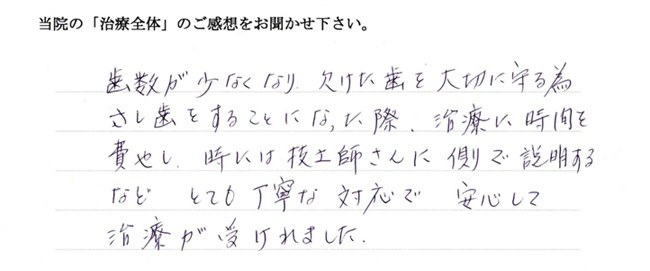 当院の「治療全体」のご感想をお聞かせ下さい。
歯数が少なくなり、欠けた歯を大切に守る為
さし歯をすることになった際、治療に時間を
費やし、時には技工師さんに側で説明する
など とても丁寧な対応で 安心して
治療が受けれました.